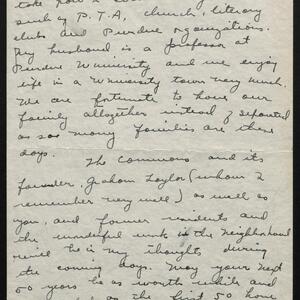 take part in
such as P.T.A, church, literary
clubs and Purdue organizations.
My husband is a professor at
Purdue University and we enjoy
life in a University town very much.
We are fortunate to have our
family altogether instead of separated
as so many families are these
days.
The Commons and its
founder, Graham Taylor (whom I
remember very well) as well as
you, and former residents and
the wonderful work in the Neighborhood
will be in my thoughts during
the coming days. May your next
50 years be as worth while and
as the first 50 have